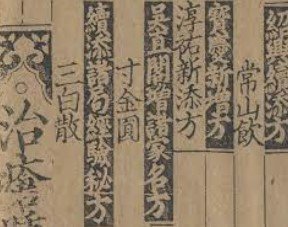 紹興續添方
常山飲
寶慶新增方
淳祐新添方
吳直閣增諸家名方
寸金圓
續添諸局經驗秘方
三白散
治